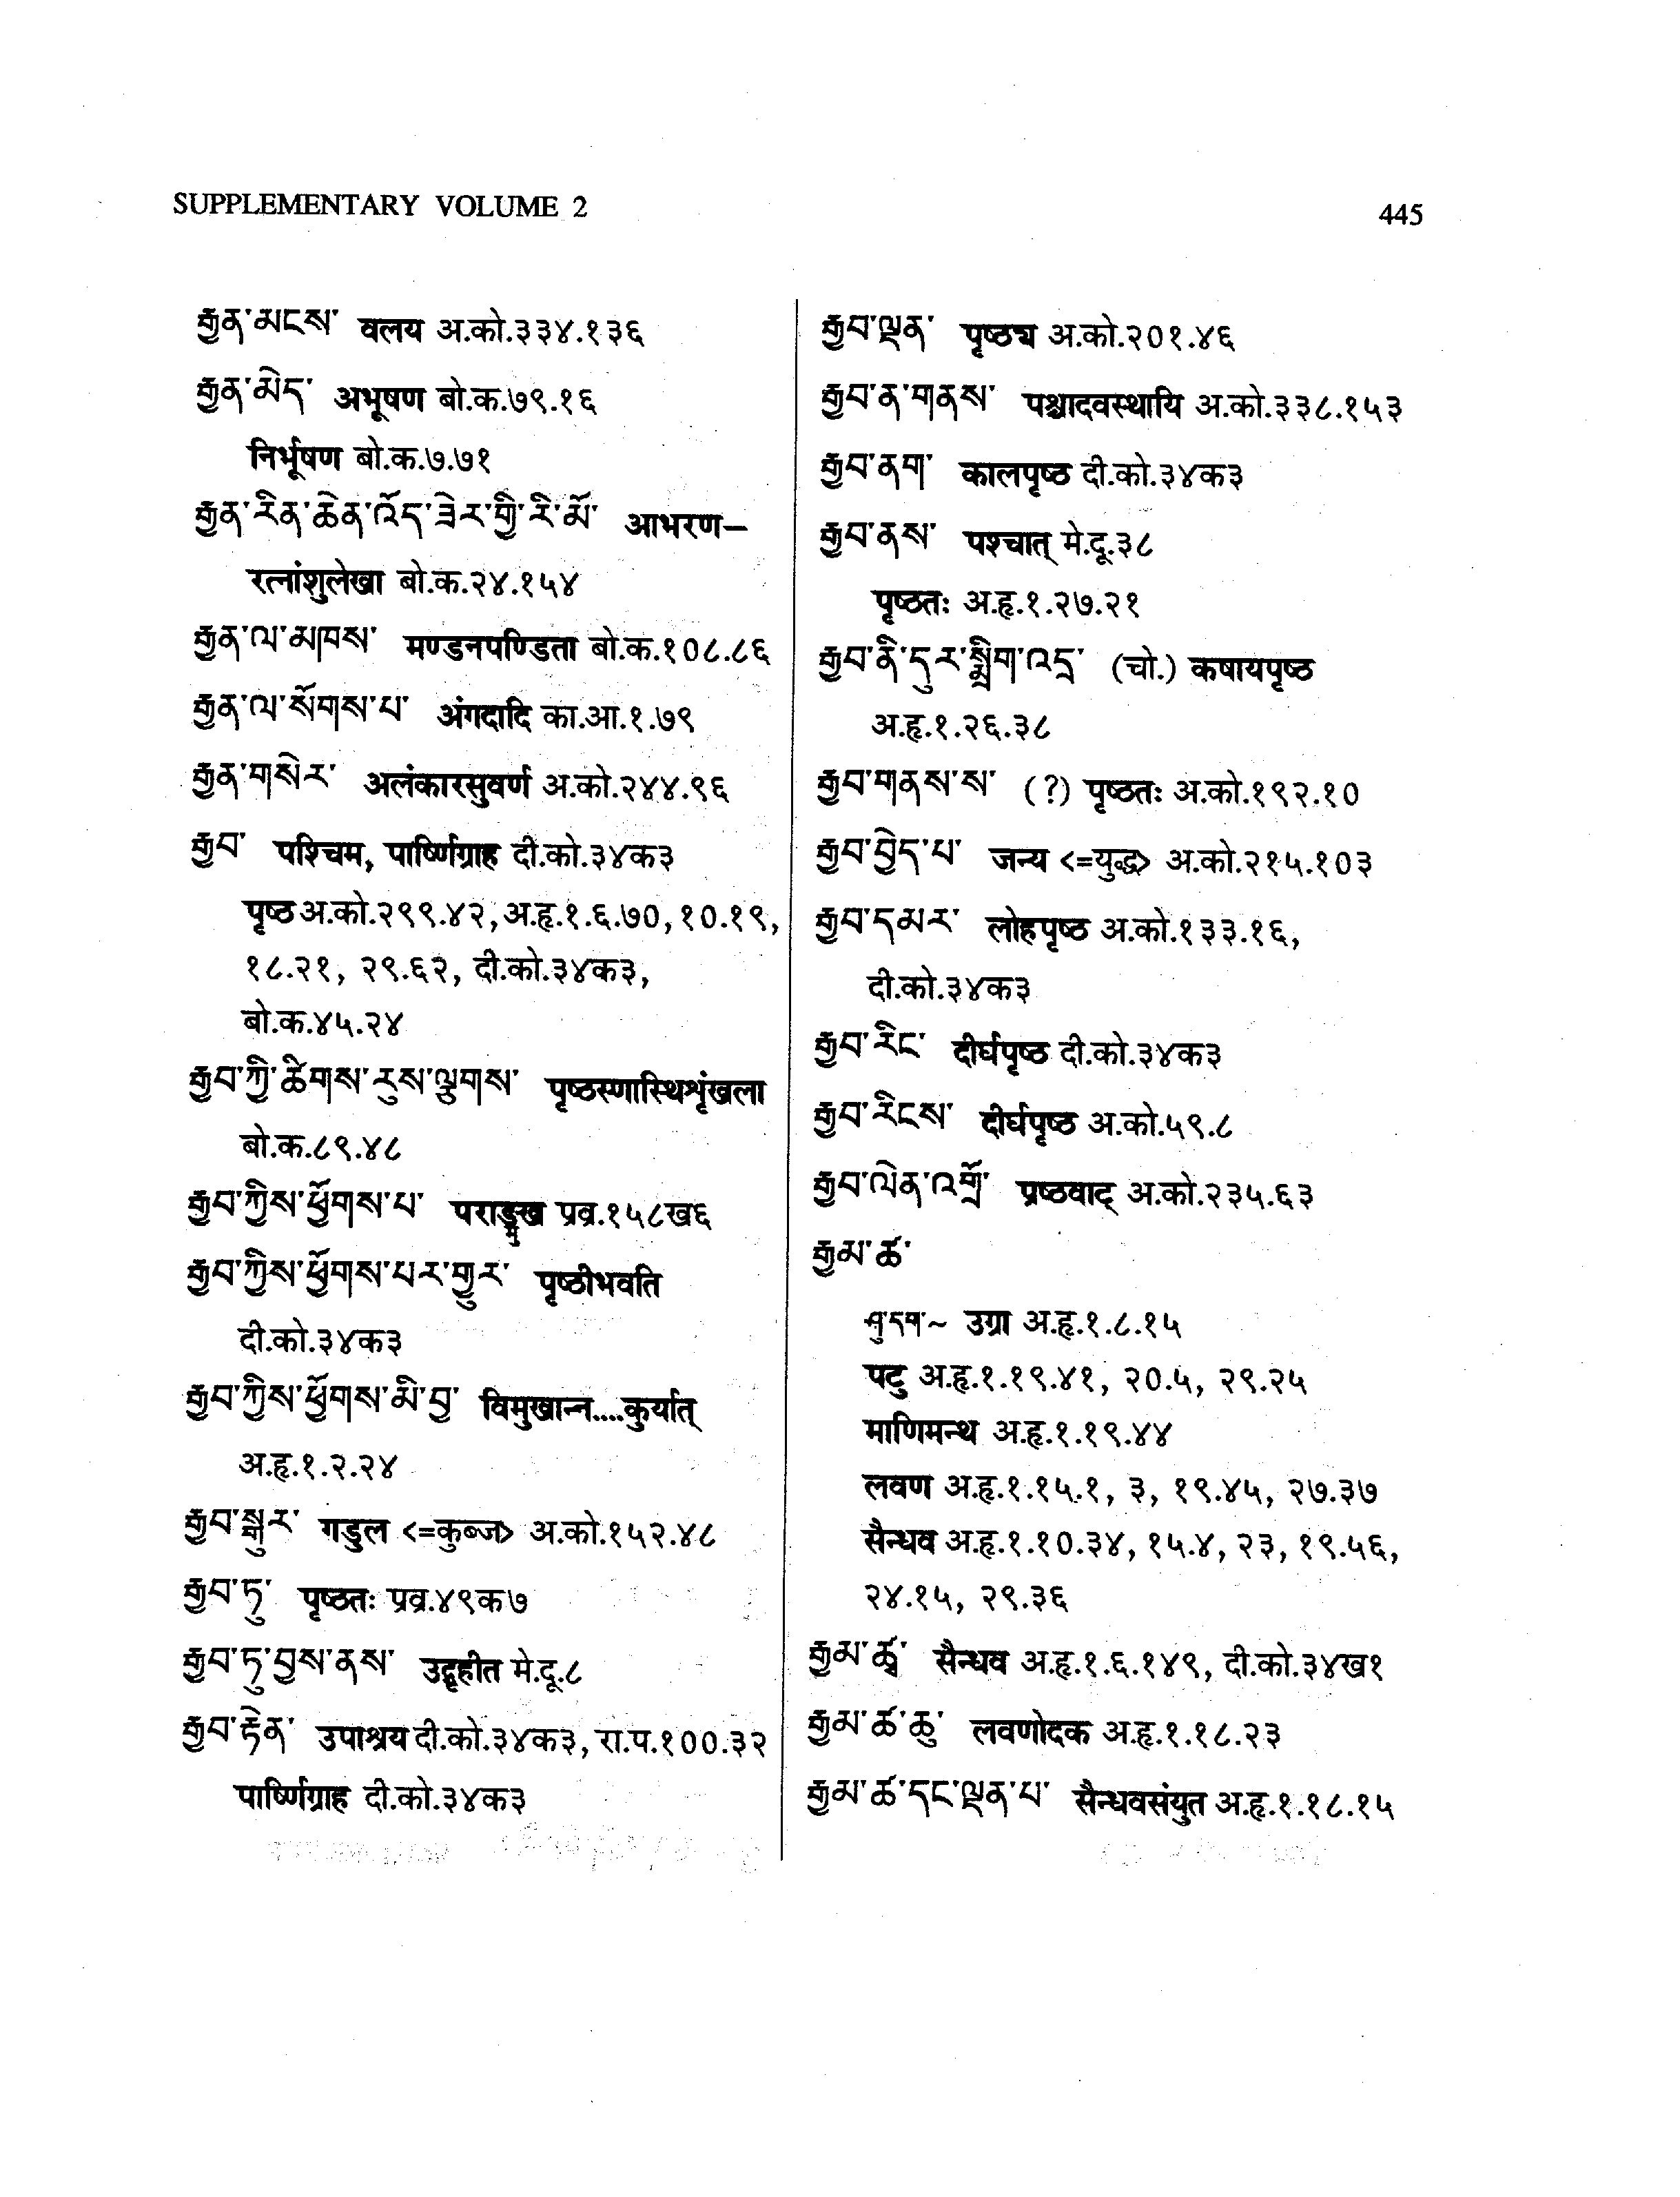 SUPPLEMENTARY VOLUME 2
445
རྒྱན་མངས་ वलय अ.को.३३४.१३६
རྒྱན་མེད་ अभूषण बो.क.७९.१६
निर्भूषण बो.क.७.७१
རྒྱན་རིན་ཆེན་འོད་ཟེར་གྱི་རི་མོ་ आभरण–
रत्नांशुलेखा बो.क.२४.१५४
རྒྱན་ལ་མཁས་ मण्डनपण्डिता बो.क.१०८.८६
རྒྱན་ལ་སོགས་པ་ अंगदादि का.आ.१.७९
རྒྱན་གསེར་ अलंकारसुवर्ण अ.को.२४४.९६
རྒྱབ་ पश्चिम, पार्ष्णिग्राह दी.को.३४क३
पृष्ठ अ.को.२९९.४२, अ.हृ.१.६.७०, १०.१९,
१८.२१, २९.६२, दी.को.३४क३,
बो.क.४५.२४
རྒྱབ་ཀྱི་ཚིགས་རུས་ལྕུགས་ पृष्ठस्णास्थिशृंखला
बो.क.८९.४८
རྒྱབ་ཀྱིས་ཕྱོགས་པ་ पराङ्मुख प्रव्र.१५८ख६
རྒྱབ་ཀྱིས་ཕྱོགས་པར་གྱུར་ पृष्ठीभवति
दी.को.३४क३
རྒྱབ་ཀྱིས་ཕྱོགས་མི་བྱ་ विमुखान्न....कुर्यात्
अ.हृ.१.२.२४
རྒྱབ་སྒུར་ गडुल <=कुब्ज> अ.को.१५२.४८
རྒྱབ་ཏུ་ पृष्ठतः प्रव्र.४९क७
རྒྱབ་ཏུ་བྱས་ནས་ उद्गृहीत मे.दू.८
རྒྱབ་རྟེན་ उपाश्रय दी.को.३४क३, रा.प.१००.३२
पार्ष्णिग्राह दी.को.३४क३
རྒྱབ་ལྡན་ पृष्ठ्य अ.को.२०१.४६
རྒྱབ་ན་གནས་ पश्चादवस्थायि अ.को.३३८.१५३
རྒྱབ་ནག་ कालपृष्ठ दी.को.३४क३
རྒྱབ་ནས་ पश्चात् मे.दू.३८
पृष्ठतः अ.हृ.१.२७.२१
རྒྱབ་ནི་དུར་སྨྲིག་འདྲ་ (चो.) कषायपृष्ठ
अ.हृ.१.२६.३८
རྒྱབ་གནས་ས་ (?) पृष्ठतः अ.को.१९२.१०
རྒྱབ་བྱེད་པ་ जन्य <=युद्ध> अ.को.२१५.१०३
རྒྱབ་དམར་ लोहपृष्ठ अ.को.१३३.१६,
दी.को.३४क३
རྒྱབ་རིང་ दीर्घपृष्ठ दी.को.३४क३
རྒྱབ་རིངས་ दीर्घपृष्ठ अ.को.५९.८
རྒྱབ་ལེན་འགྲོ་ प्रष्ठवाट् अ.को.२३५.६३
རྒྱམ་ཚ་
ཤུ་དག་~ उग्रा अ.हृ.१.८.१५
पटु अ.हृ.१.१९.४१, २०.५, २९.२५
माणिमन्थ अ.हृ.१.१९.४४
लवण अ.हृ.१.१५.१, ३, १९.४५, २७.३७
सैन्धव अ.हृ.१.१०.३४, १५.४, २३, १९.५६,
२४.१५, २९.३६
རྒྱམ་ཚྭ་ सैन्धव अ.हृ.१.६.१४९, दी.को.३४ख१
རྒྱམ་ཚ་ཆུ་ लवणोदक अ.हृ.१.१८.२३
རྒྱམ་ཚ་དང་ལྡན་པ་ सैन्धवसंयुत अ.हृ.१.१८.१५